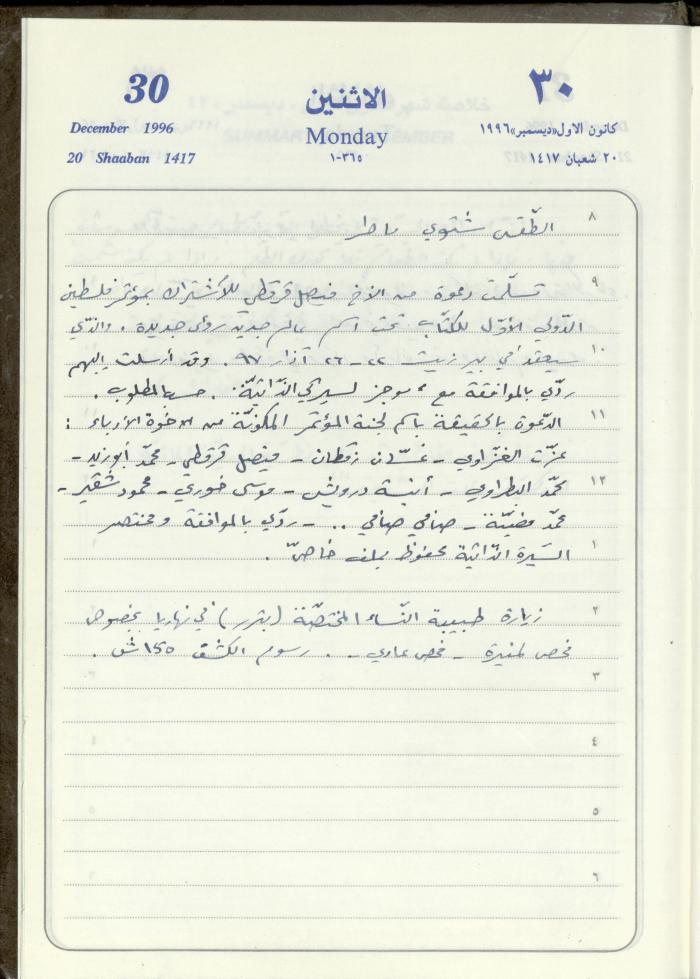 30
الاثنين
٣٠
December 1996
Monday
كانون الاول «ديسمبر» ١٩٩٦
20 Shaaban 1417
١-٣٦٥
٢٠ شعبان ١٤١٧
٨
الطّقس شتوي ماطر
٩
تسلّمت دعوة من الأخ فيصل قرقطي للأشتراك بمؤتمر فلسطين
الدّولي الأوّل للكتّاب تحت اسم عالم جديد رؤى جديدة. والذي
١٠
سيعقد في بير زيت ٢٢-٢٦ آذار ٩٧. وقد أرسلت إليهم
ردّي بالموافقة مع موجز لسيرتي الذّاتيّة. حسب المطلوب.
١١
الدّعوة بالحقيقة باسم لجنة المؤتمر المكوّنة من الاخوة الأدباء:
عزّت الغزّاوي - غسّان زقطان - فيصل قرقطي - محمّد أبو زيد -
١٢
محمّد البطراوي - أنيسة درويش - موسى خوري - محمود شقير -
محمّد صافي صافي .. - ردّي بالموافقة ومختصر
١
السّيرة الذّاتية محفوظ بملف خاصّ.
٢
زيارة طبيبة النّساء المختصّة () في نهاريا بخصوص
فحص لمنيرة - فحص عادي - . رسوم الكشف ١٥٠ ش.
٣
٤
٥
٦